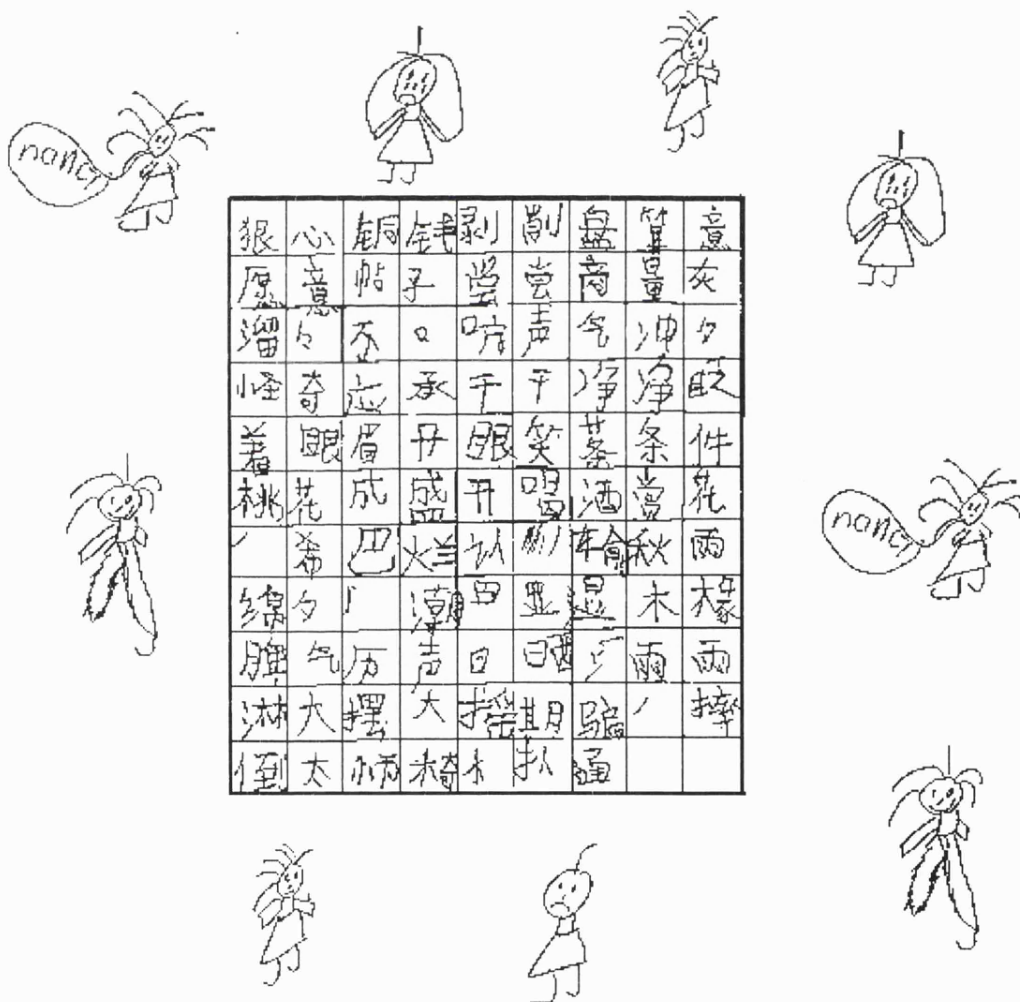 nancy
狠心铜钱剥削盘算意
愿意帖子尝尝商量灰
溜气声冲夕
怪奇应承千干净净眨
着眼眉开眼笑茶条件
桃花成盛开唱酒赏花
希巴认输秋雨
绵夕潮显木椽
脾气历声日晒雨雨
淋大摆大摇期骗摔
倒太柄椅木扒通
nancy